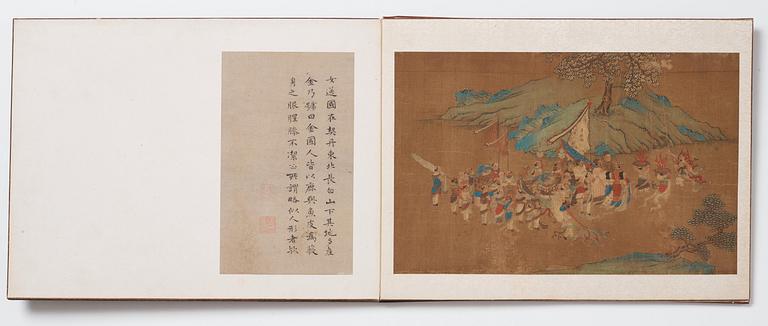 女送國在契丹東北長白山下其地多產
金乃號曰金國人皆以麻與魚皮為蔽
身之服腥臊不潔正所謂略似人形者歟